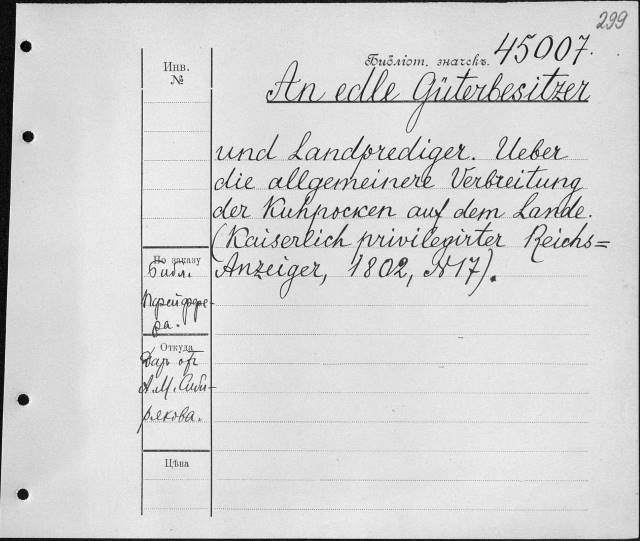 299
Библіот. значекъ. 45007.
Инв.
№
An edle Güterbesitzer
und Landprediger. Ueber
die allgemeinere Verbreitung
der Kuhpocken auf dem Lande.
(Kaiserlich privilegirter Reichs=
Anzeiger, 1802, N 17).
По заказу
Библ.
Откуда
Даръ отъ
А.М. Сиби-
рякова.
Цѣна